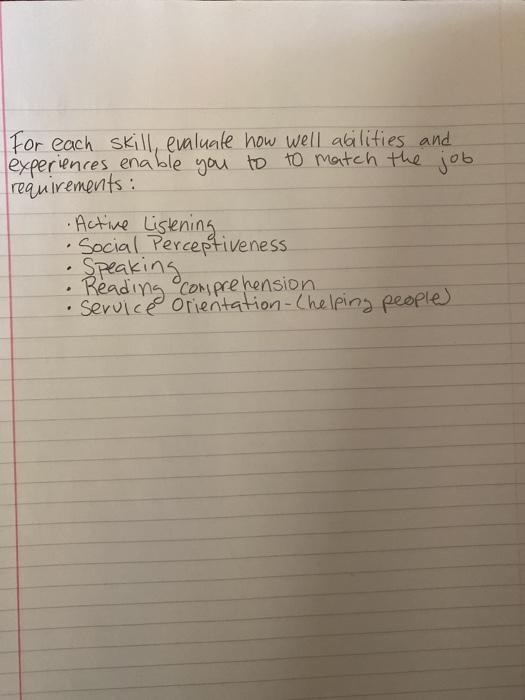 For each skill, evaluate how well abilities and
experiences enable you to to match the job
requirements:
· Active Listening
· Social Perceptiveness
· Speaking
· Reading comprehension
· Service Orientation - (helping people)